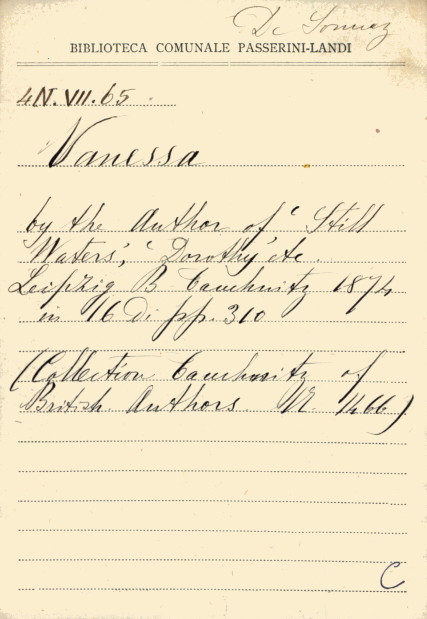 De
BIBLIOTECA COMUNALE PASSERINI-LANDI
4N.VII.65
Vanessa
by the Author of 'Still
Waters', 'Dorothy' etc.
Leipzig B Tauchnitz 1874
in 16 di pp. 310
(Collection Tauchnitz of
British Authors. Vr. 1466)
C